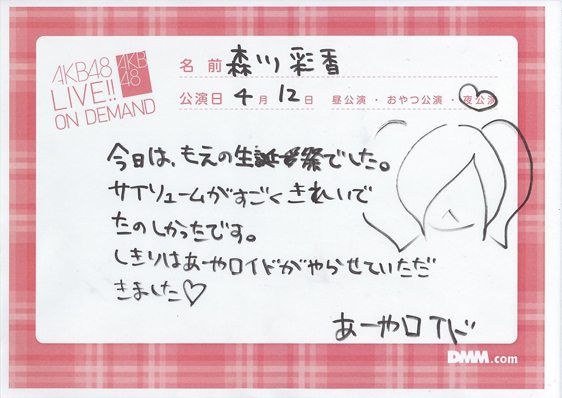 AKB48
LIVE!!
ON DEMAND
AKB
48
名前 森川彩香
公演日 4月12日 昼公演・おやつ公演・夜公演
今日は、もえの生誕祭でした。
サイリュームがすごくきれいで
たのしかったです。
しきりはあーやロイドがやらせていただ
きました♡
あーやロイド
DMM.com